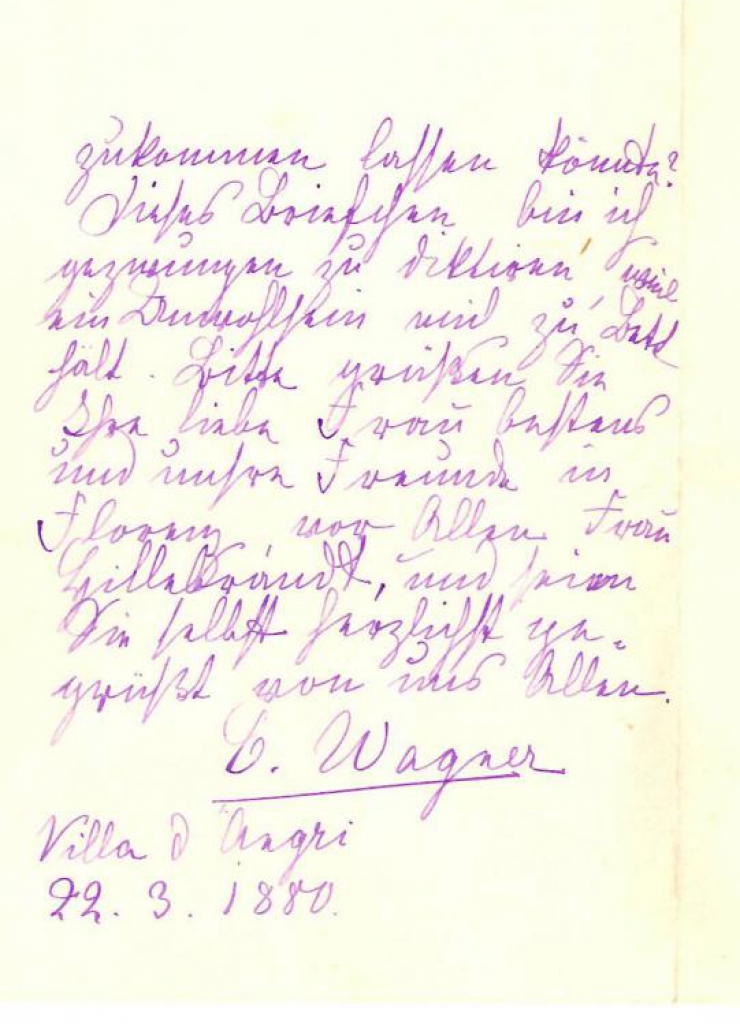 zukommen lassen könnte?
Dieses Briefchen bin ich
gezwungen zu diktiren, weil
ein Unwohlsein mich zu Bett
hält. Bitte grüßen Sie
Ihre liebe Frau bestens
und unsre Freunde in
Florenz, vor Allen Frau
Hillebrandt, und seien
Sie selbst herzlichst ge-
grüßt von uns Allen.
C. Wagner
Villa d'Angri
22. 3. 1880.